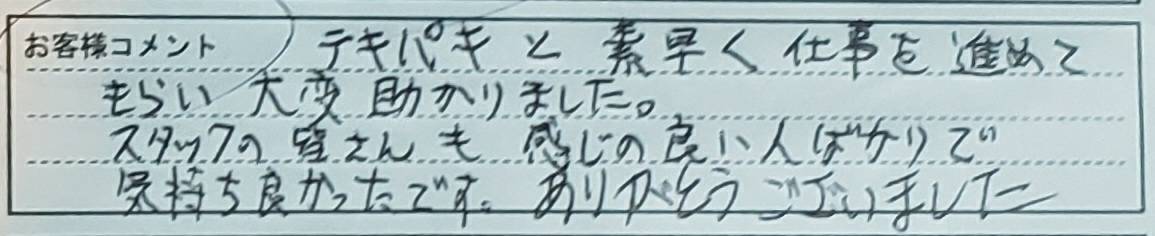 お客様コメント テキパキと素早く仕事を進めて
もらい大変助かりました。
スタッフの皆さんも感じの良い人ばかりで
気持ち良かったです。ありがとうございました